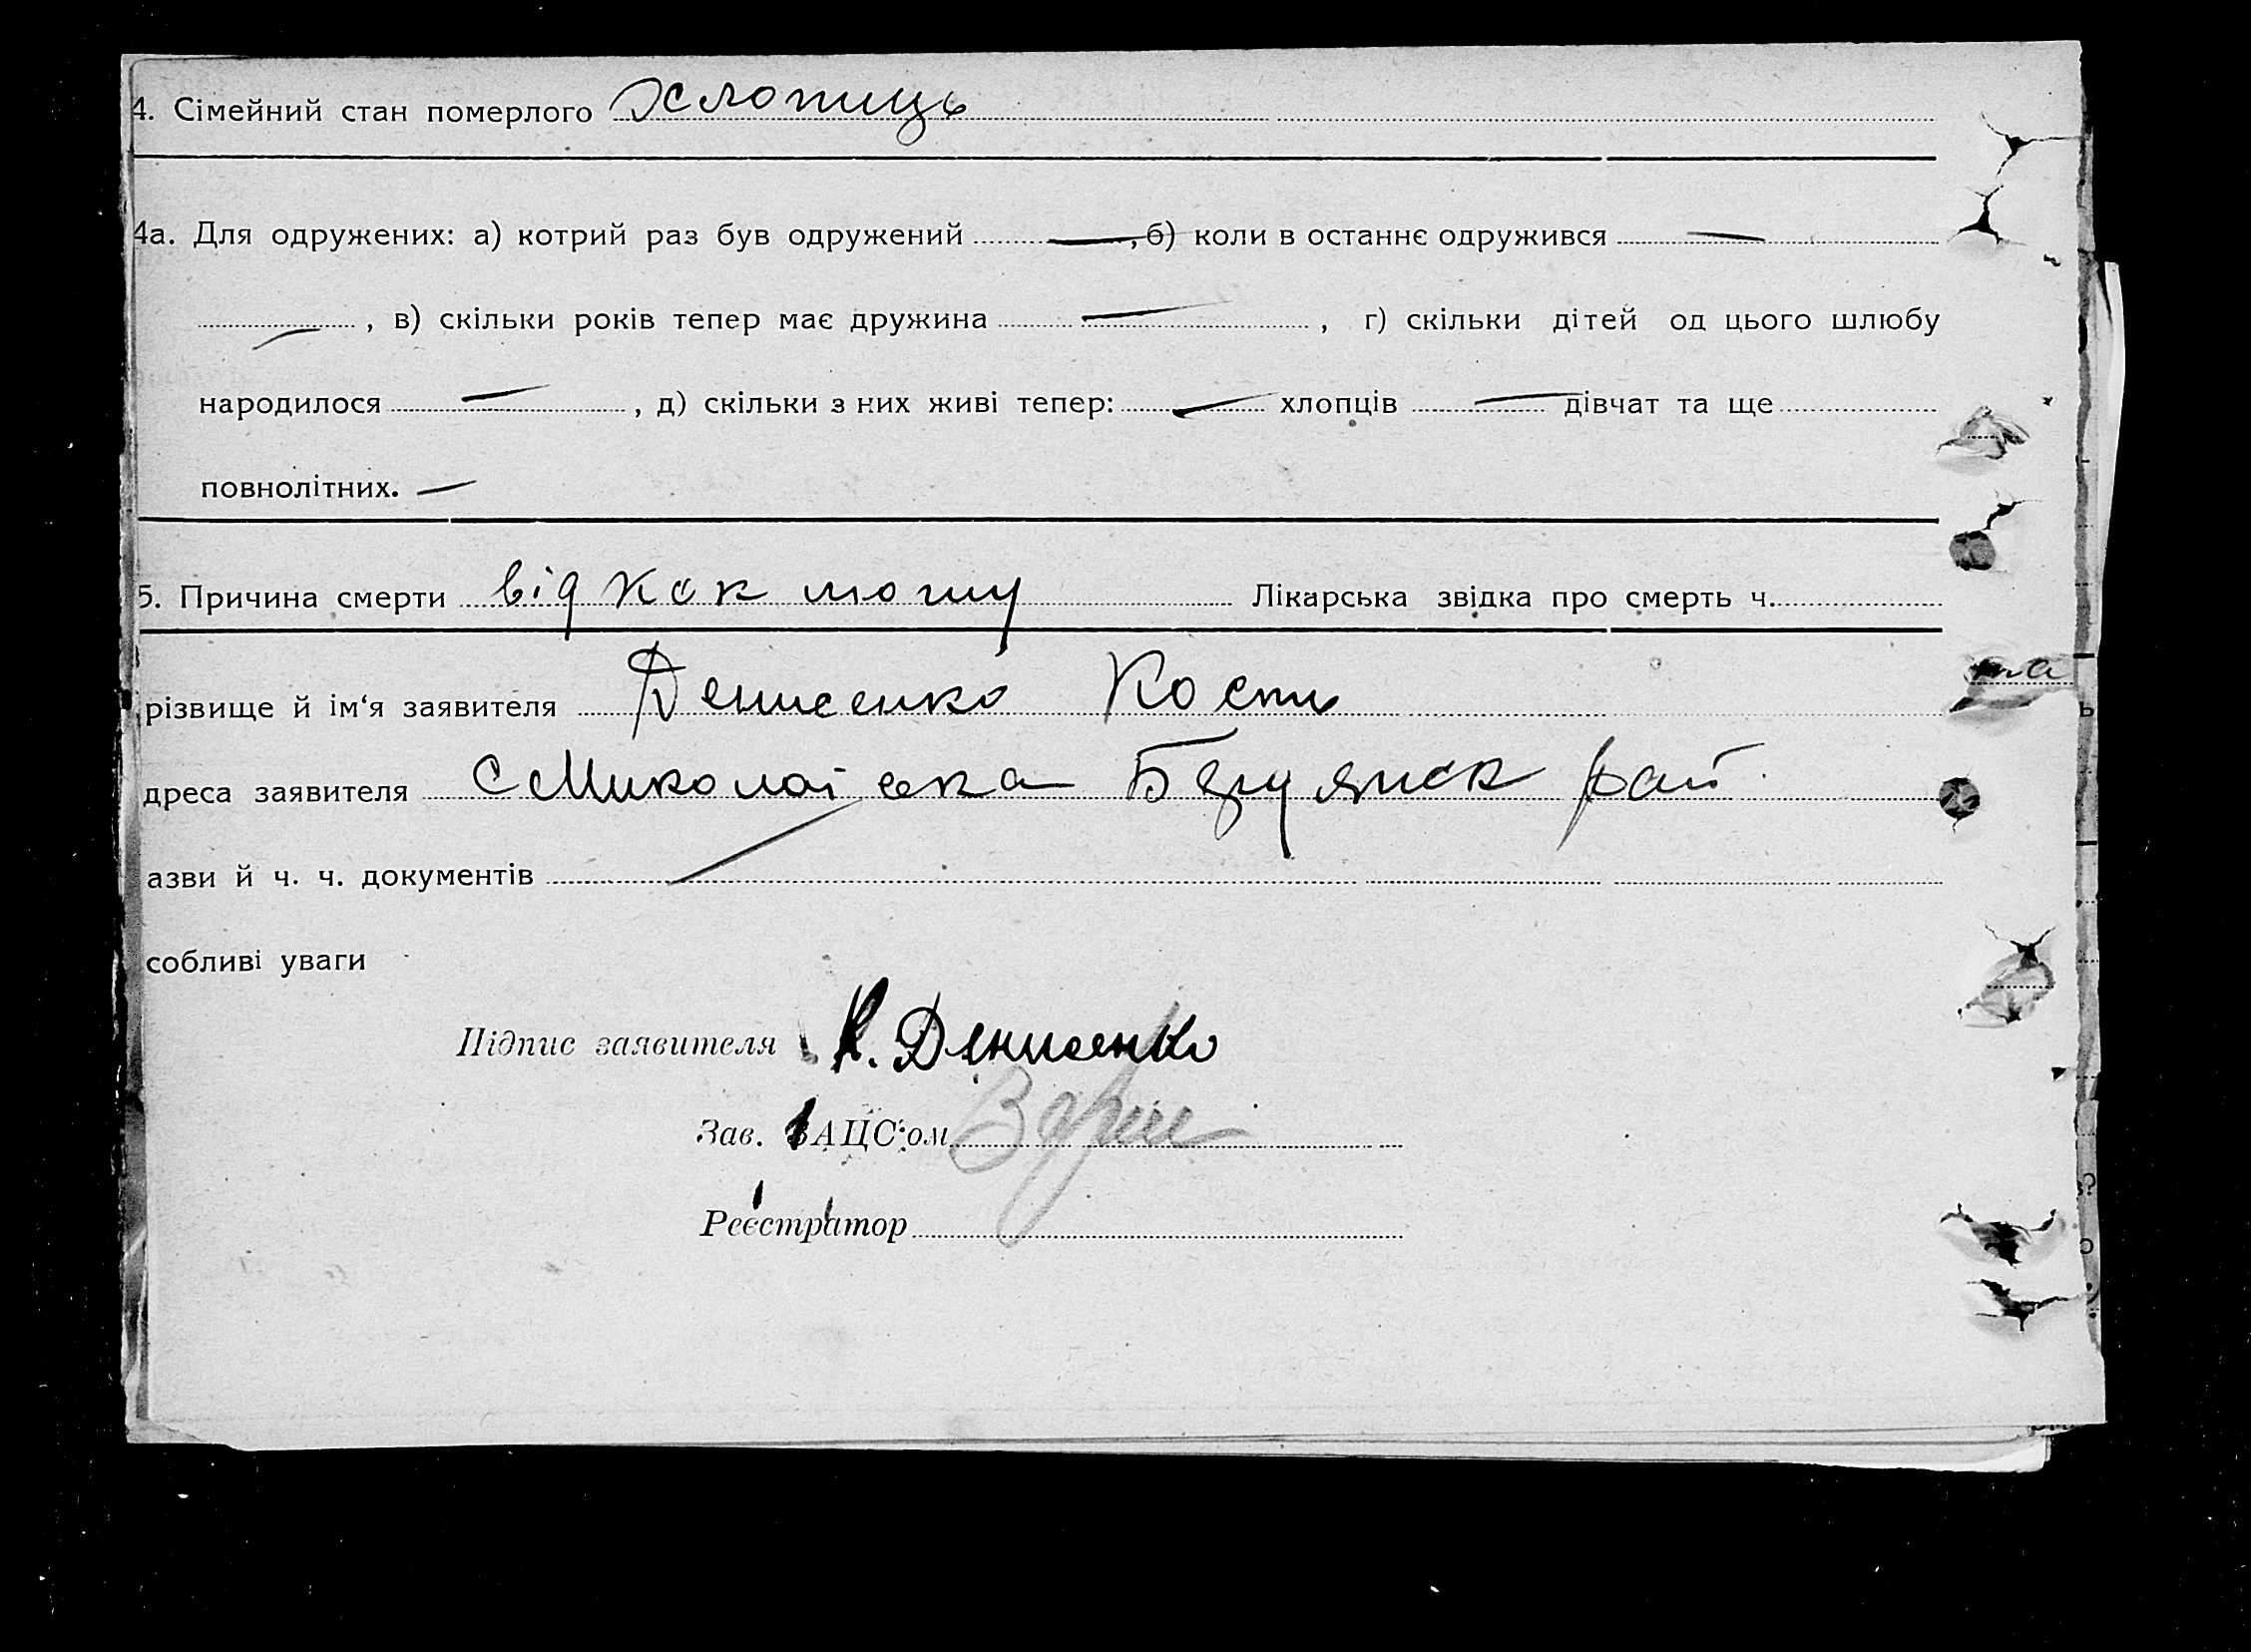 4. Сімейний стан померлого Хлопиць
4а. Для одружених: а) котрий раз був одружений —, б) коли в останнє одружився —
—, в) скільки років тепер має дружина —, г) скільки дітей од цього шлюбу
народилося —, д) скільки з них живі тепер: — хлопців — дівчат та ще
повнолітних. —
5. Причина смерти від коклюшу Лікарська звідка про смерть ч.
різвище й ім‘я заявителя Денисенко Кость
дреса заявителя с Миколаївка Бердянск рай
азви й ч. ч. документів —
собливі уваги
Підпис заявителя К. Денисенко
Зав. ЗАЦС‘ом
Реєстратор